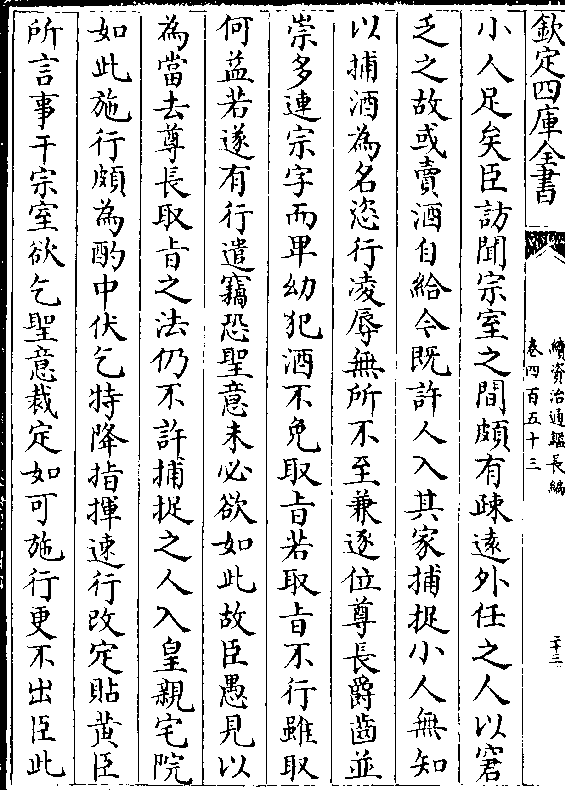 欽定四庫全書
續資治通鑑長編
卷四百五十三
二十三
小人足矣臣訪聞宗室之間頗有疎遠外任之人以窘
乏之故或賣酒自給今既許人入其家捕捉小人無知
以捕酒為名恣行凌辱無所不至兼逐位尊長爵齒並
崇多連宗字而卑幼犯酒不免取㫖若取㫖不行雖取
何益若遂有行遣竊恐聖意未必欲如此故臣愚見以
為當去尊長取㫖之法仍不許捕捉之人入皇親宅院
如此施行頗為酌中伏乞特降指揮速行改定貼黄臣
所言事干宗室欲乞聖意裁定如可施行更不出臣此